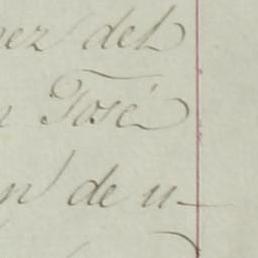 ez del
José
n de u-